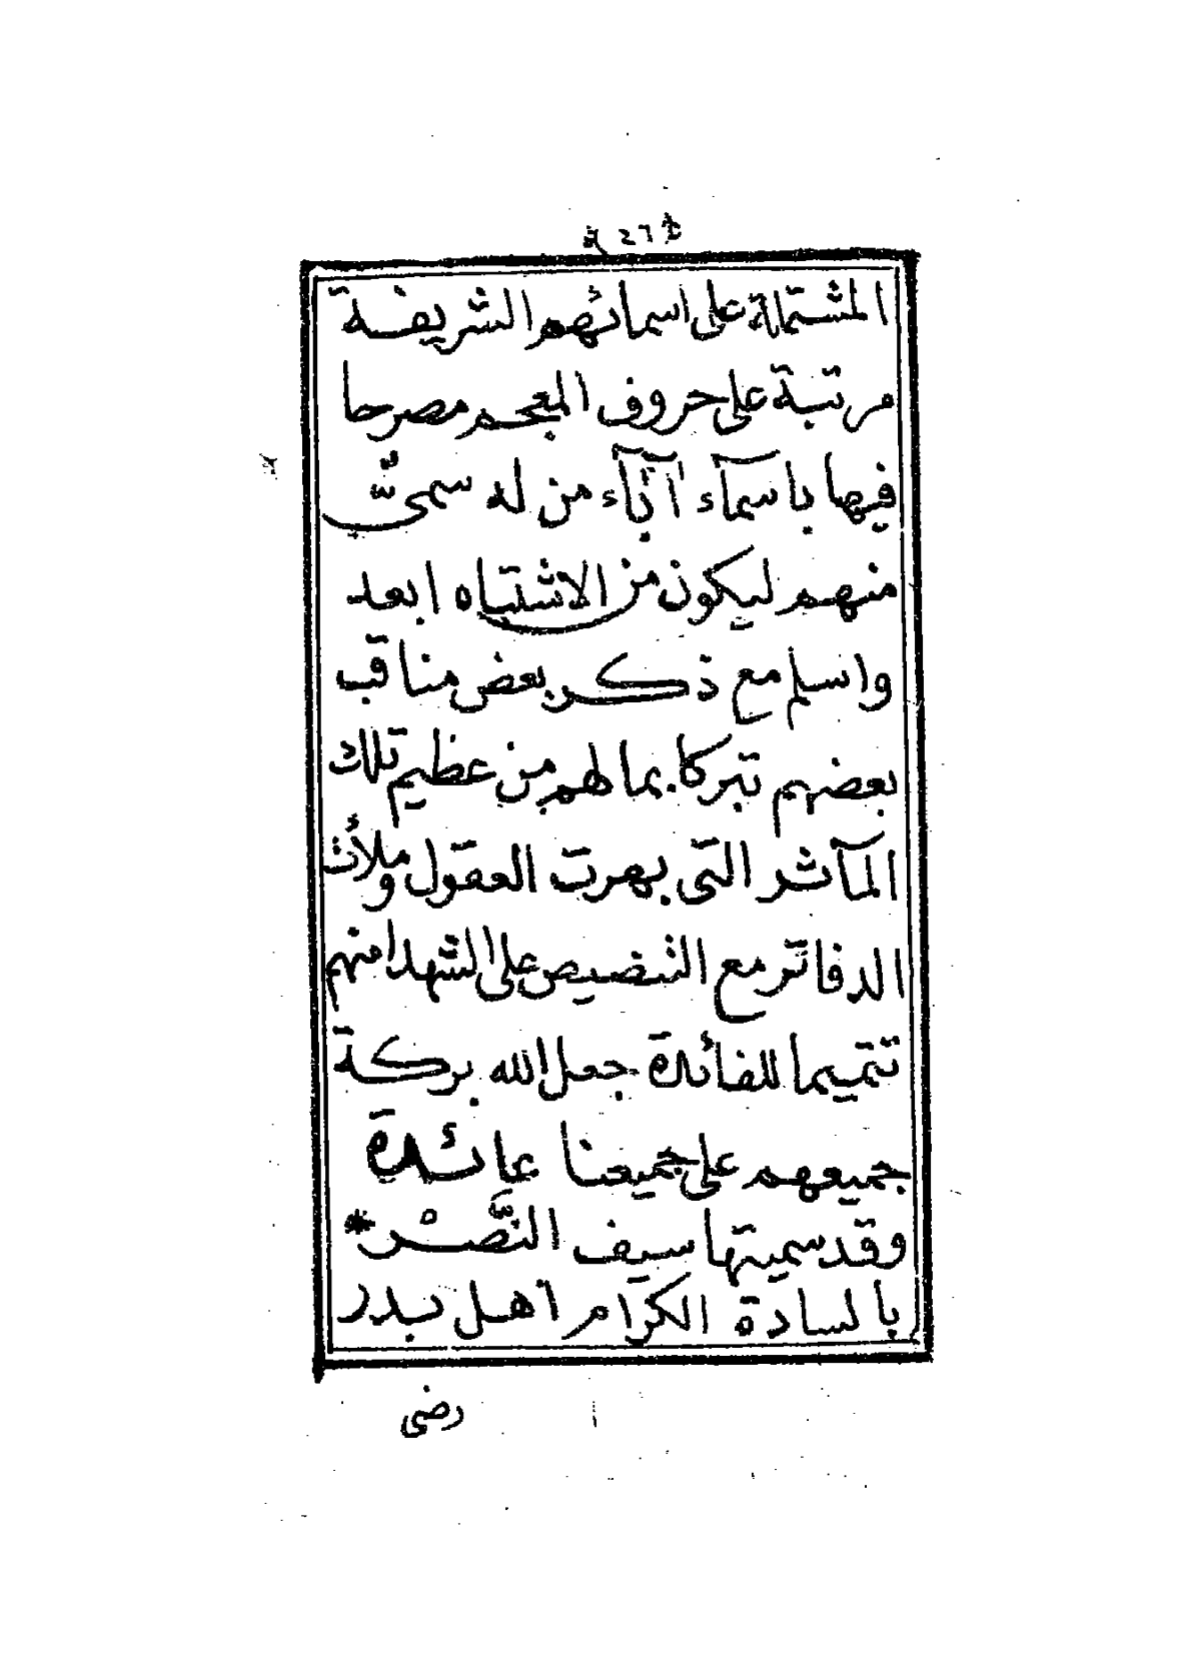 ٢٦
المشتملة على اسمائهم الشريفة
مرتبة على حروف المعجم مصرحا
فيها باسمآء آبآء من له سمىّ
منهم ليكون من الاشتباه ابعد
واسلم مع ذكر بعض مناقب
بعضهم تبركا بمالهم من عظيم تلك
المآثر التى بهرت العقول وملأت
الدفاتر مع التنصيص على الشهدا منهم
تتميما للفائدة جعل الله بركة
جميعهم على جميعنا عائدة
وقد سميتها سيف النَّصْر *
بالسادة الكرام اهل بدر
رضى